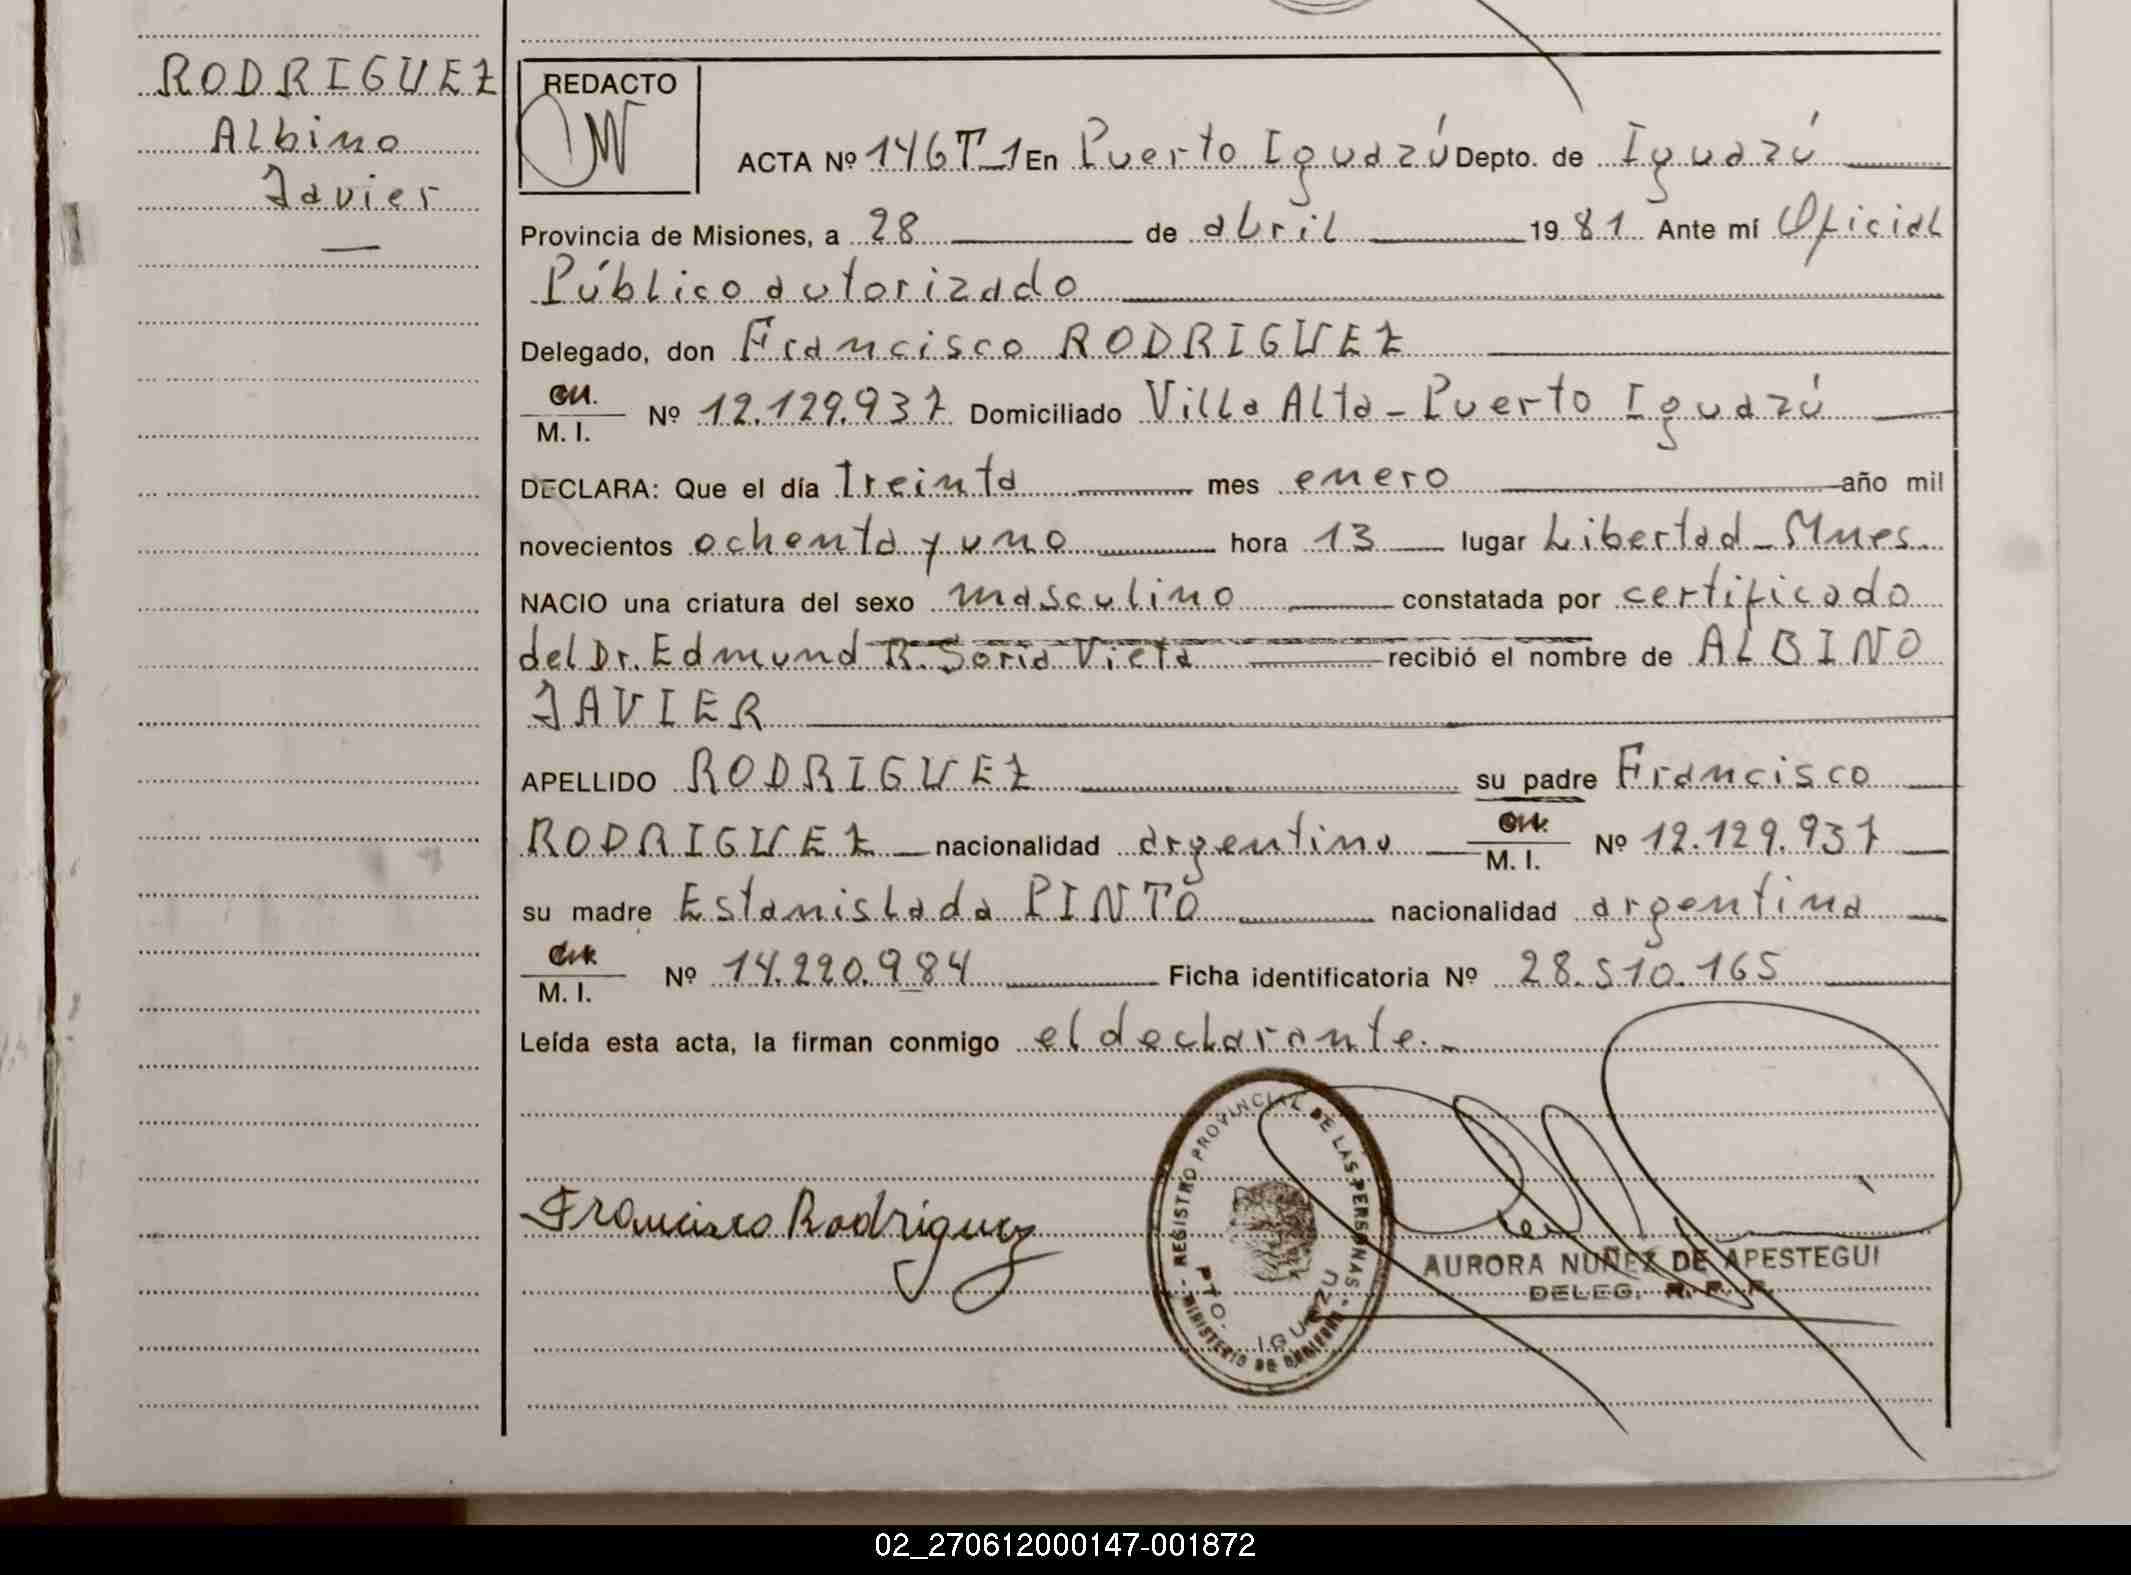 RODRIGUEZ
Albino
Javier
REDACTO
ACTA Nº 146 T_1 En Puerto Iguazú Depto. de Iguazú
Provincia de Misiones, a 28 de abril 1981 Ante mí Oficial
Público autorizado
Delegado, don Francisco RODRIGUEZ
M. I. Nº 12.129.937 Domiciliado Villa Alta - Puerto Iguazú
DECLARA: Que el día Treinta mes enero año mil
novecientos ochenta y uno hora 13 lugar Libertad - Mnes.
NACIO una criatura del sexo masculino constatada por certificado
del Dr. Edmund R. Soria Vieta recibió el nombre de ALBINO
JAVIER
APELLIDO RODRIGUEZ su padre Francisco
RODRIGUEZ nacionalidad argentino M. I. Nº 12.129.937
su madre Estanislada PINTO nacionalidad argentina
M. I. Nº 14.220.984 Ficha identificatoria Nº 28.510.165
Leída esta acta, la firman conmigo el declarante.-
REGISTRO PROVINCIAL DE LAS PERSONAS
PTO. IGUAZU
MINISTERIO DE GOBIERNO
Francisco Rodriguez
AURORA NUÑEZ DE APESTEGUI
DELEG. R. P. P.
02_270612000147-001872